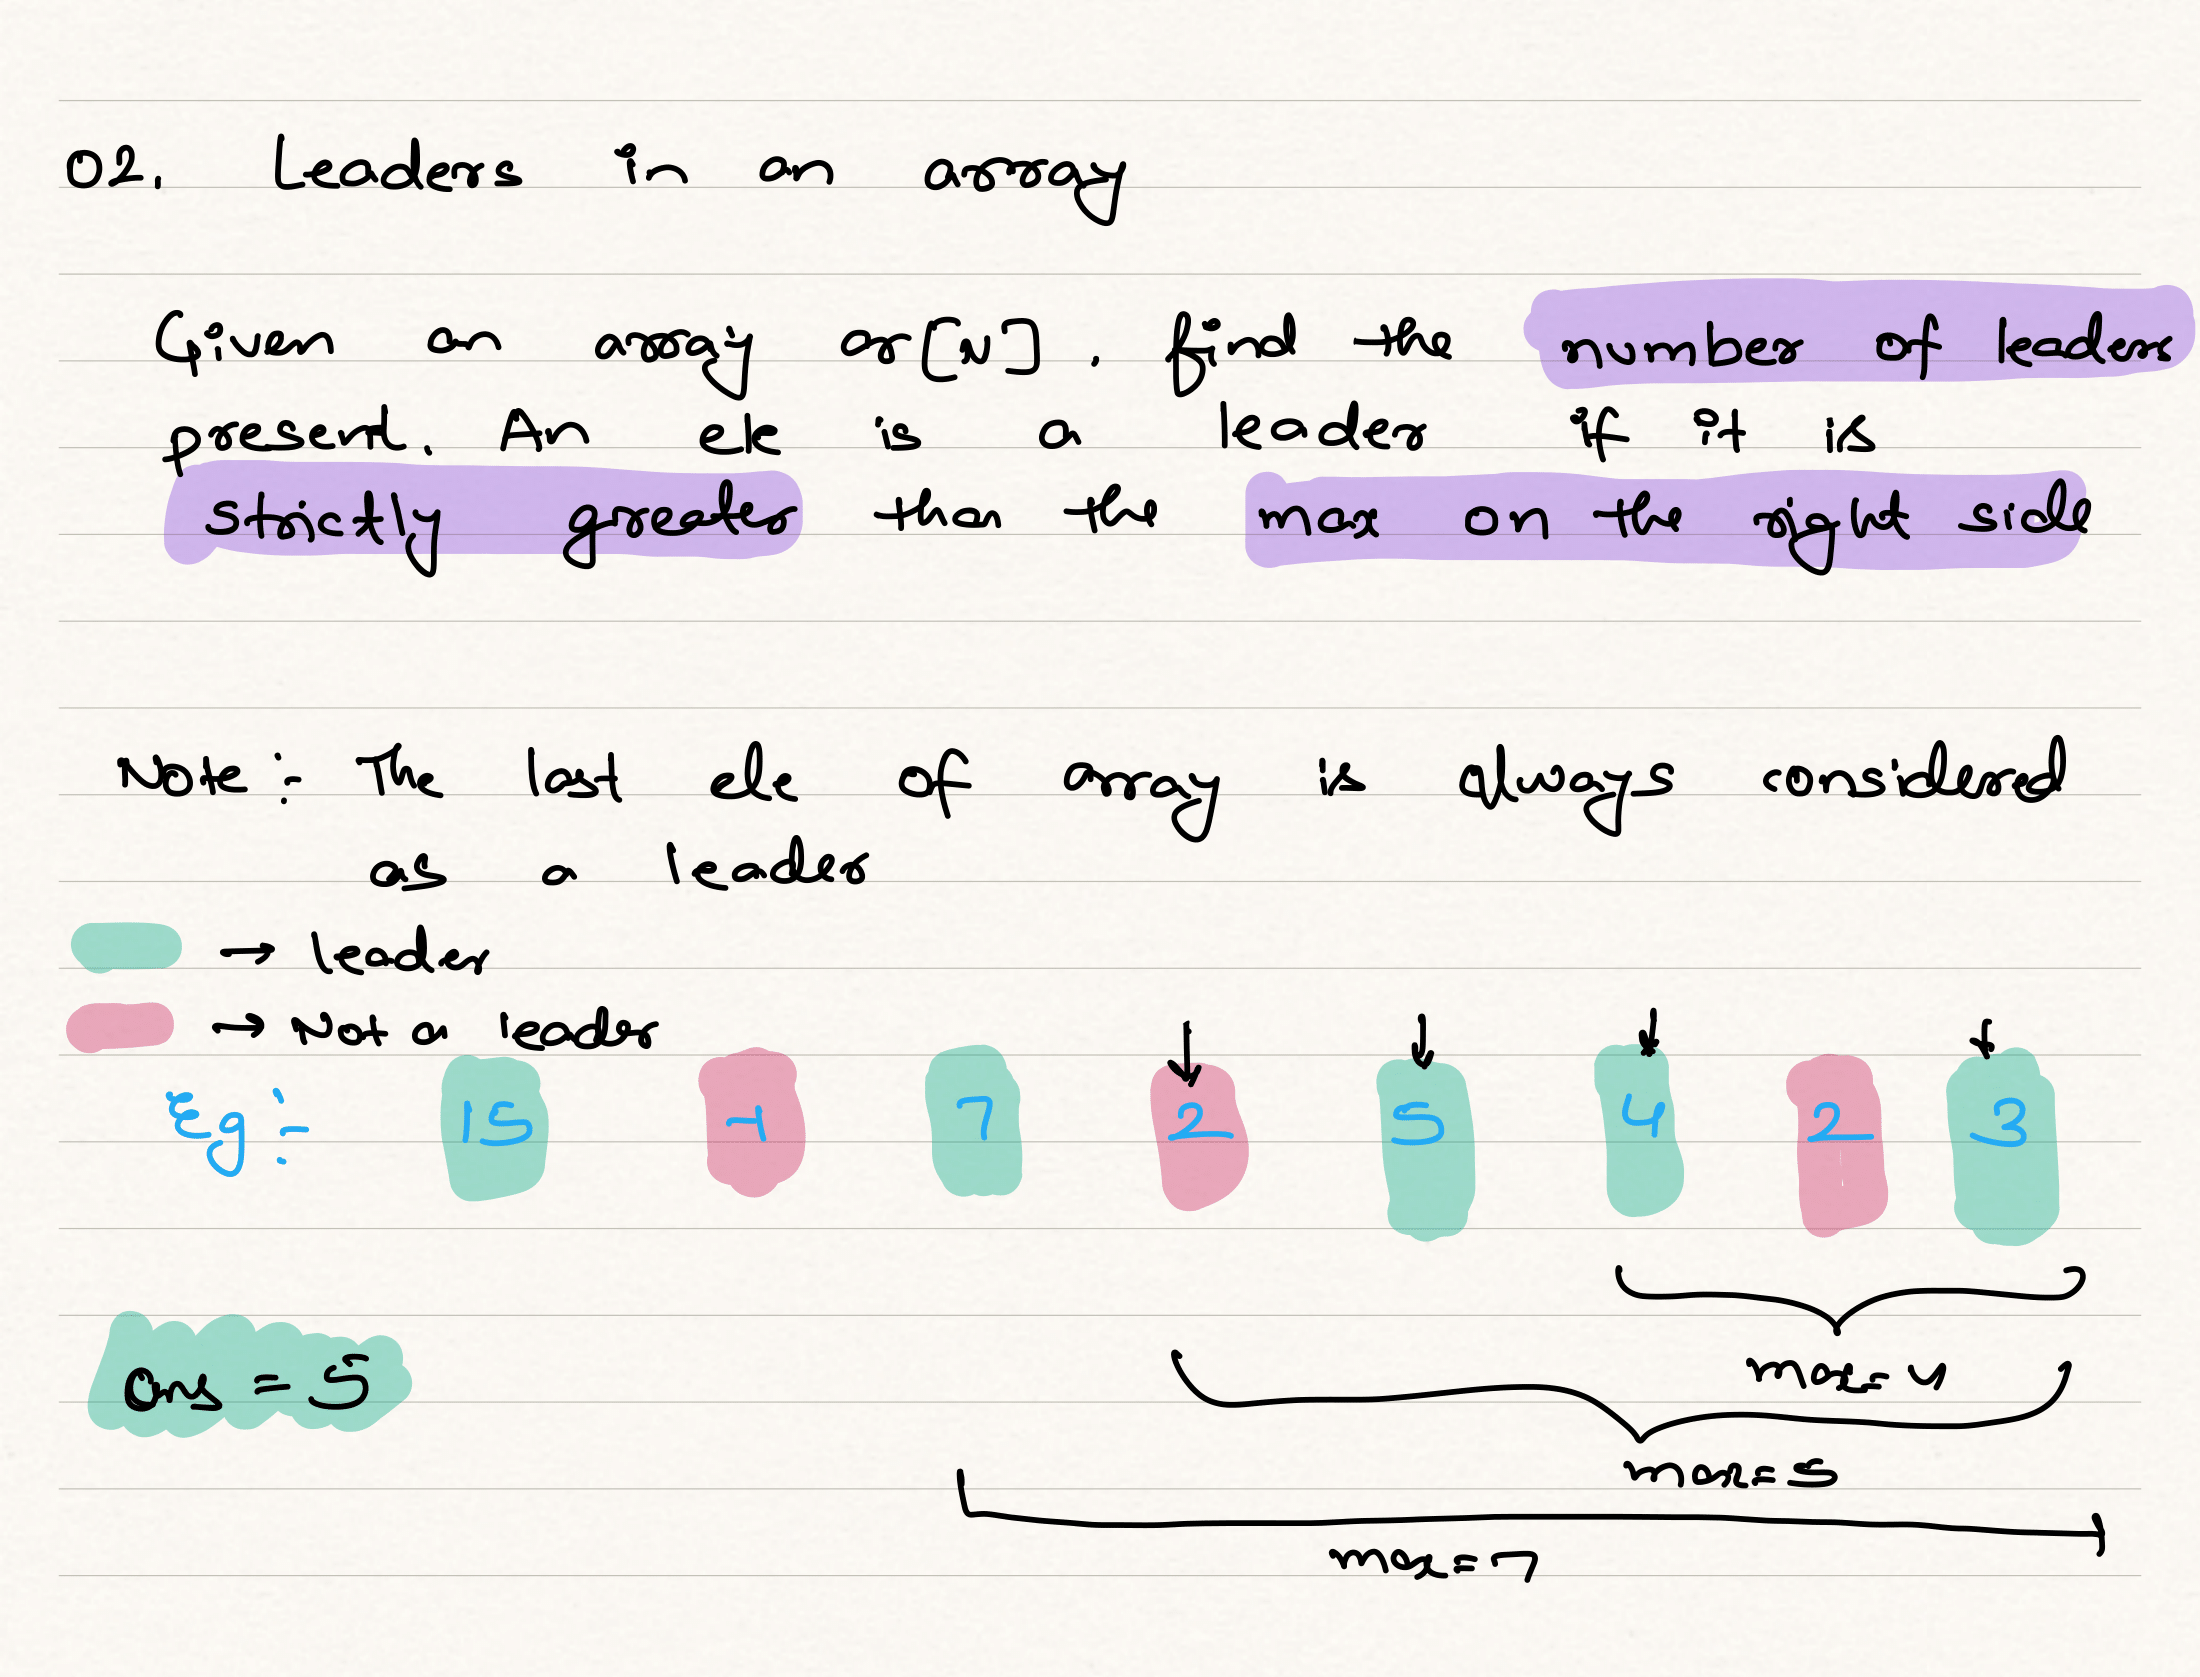 02. Leaders in an array
Given an array ar[N]. find the number of leaders
present. An ele is a leader if it is
strictly greater than the max on the right side
Note :- The last ele of array is always considered
as a leader
→ leader
→ Not a leader
Eg :- 15 -1 7 2 5 4 2 3
max=4
ans = 5
max=5
max=7